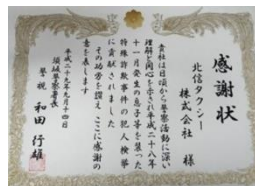 感謝状
北信タクシー
株式会社 様
貴社は日頃から警察活動に深い
理解と関心を示され平成二十八年
十一月発生の息子等を装った
特殊詐欺事件の犯人検挙
に貢献されました
その功労を讃え、ここに感謝の
意を表します
平成二十九年九月十四日
須坂警察署長
警視 和田行雄